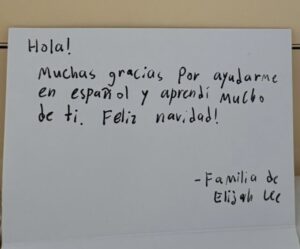 Hola!
Muchas gracias Por ayudarme
en español y aprendí mucho
de ti. Feliz navidad!
-Familia de
Elijah Lee